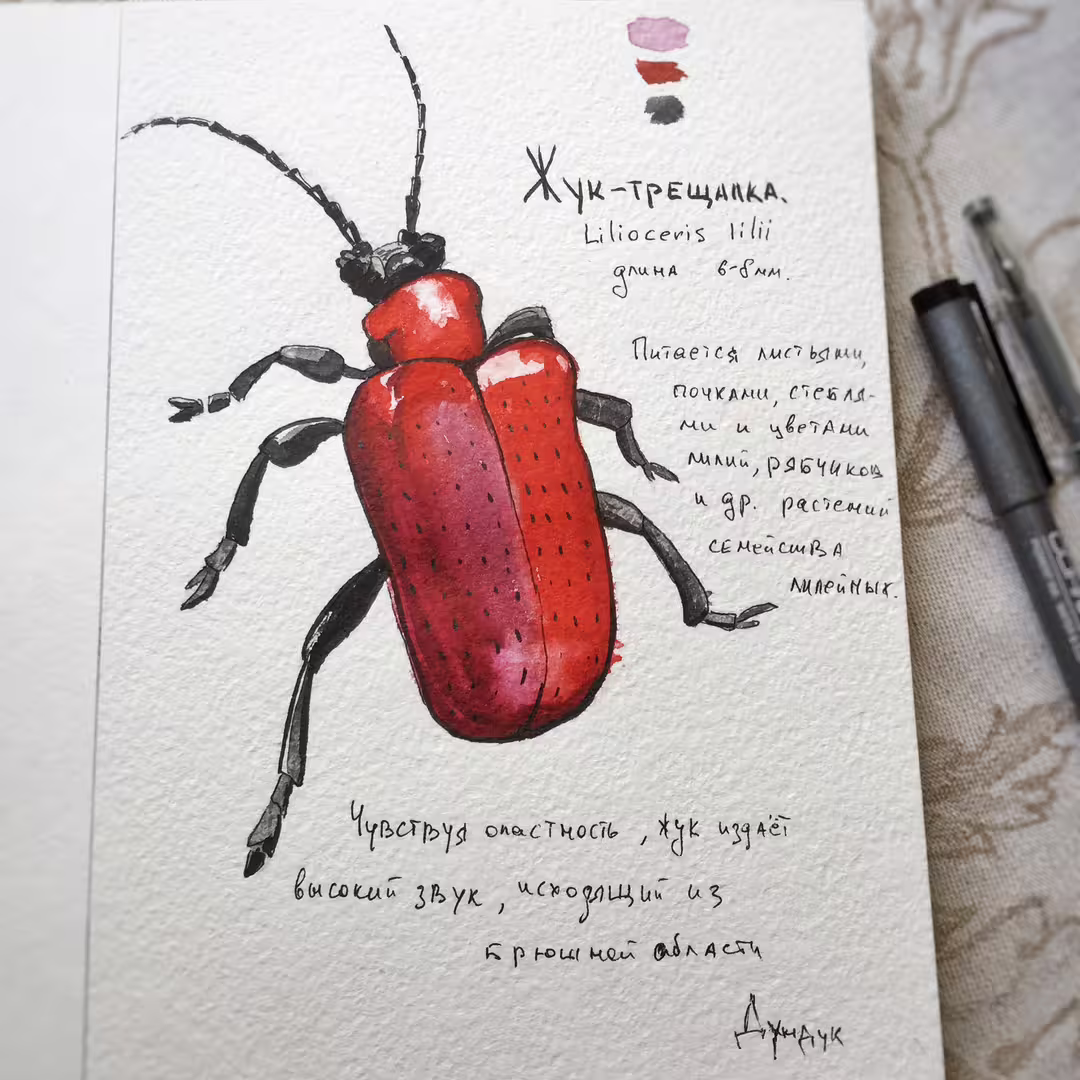 Жук-трещалка.
Lilioceris lilii
длина 6-8мм.
Питается листьями,
почками, стебля-
ми и цветами
лилий, рябчиков
и др. растений
семейства
лилейных.
Чувствуя опастность, жук издаёт
высокий звук, исходящий из
брюшной области